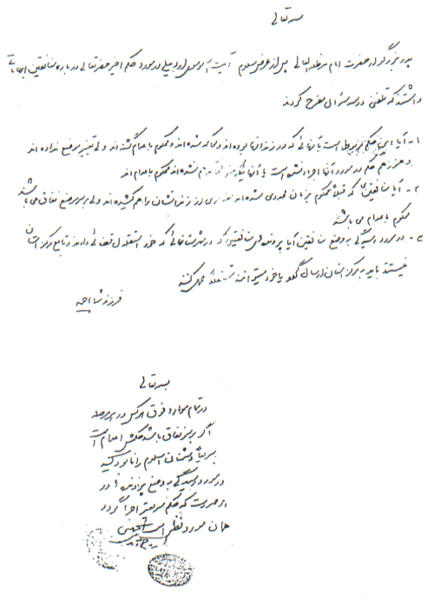 بسمه تعالی
پدر بزرگوار حضرت امام مدظله العالی پس از عرض سلام، آیت الله موسوی اردبیلی در مورد حکم اخیر حضرتعالی درباره منافقین ابهاماتی
داشته‌اند که تلفنی در سه سؤال مطرح کردند
۱- آیا این حکم مربوط است به آنهایی که در زندانها بوده‌اند و محاکمه شده‌اند و محکوم به اعدام گشته‌اند ولی تغییر موضع نداده‌اند
و هنوز هم حکم در مورد آنها اجرا نشده است یا آنهایی که حتی محاکمه هم نشده‌اند محکوم به اعدام‌اند
۲- آیا منافقین که قبلاً محکوم به زندان محدود شده‌اند مقداری از زندانشان را هم کشیده‌اند ولی بر سر موضع نفاق می‌باشند
محکوم به اعدام می‌باشند
۳- در مورد رسیدگی به وضع منافقین آیا پرونده‌های منافقینی که در شهرستانهائی که خود استقلال قضائی دارند و تابع مرکز استان
نیستند باید به مرکز استان ارسال گردد یا خود میتوانند مستقلاً عمل کنند
فرزند شما احمد
بسمه تعالی
در تمام موارد فوق هر کس در هر مرحله
اگر بر سر نفاق باشد حکمش اعدام است
سریعاً دشمنان اسلام را نابود کنید
در مورد رسیدگی به وضع پرونده‌ها در
هر صورت که حکم سریعتر اجرا گردد
همان مورد نظر است